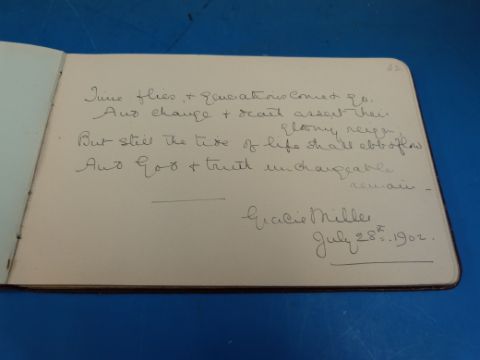 52
Time flies, & generations come & go,
And change & death assert their
gloomy reign,
But still the tide of life shall ebb & flow
And God & truth unchangeable
remain -
Gracie Miller
July 28th. 1902.